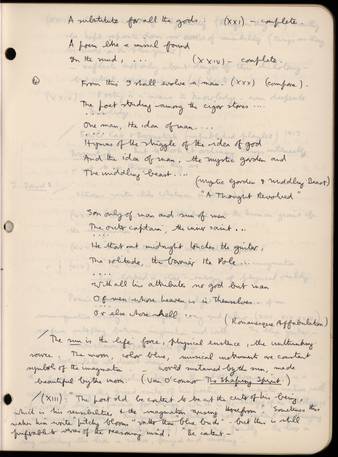 A substitute for all the gods: (XXI) - complete.
A poem like a missal found
In the mud, ... (XXIV) - complete.
From this I shall evolve a man. (XXX) (compare).
The poet striding among the cigar stores ....
....
One man, the idea of man ....
....
Hymns of the struggle of the idea of god
And the idea of man, the mystic garden and
The middling beast ....
(Mystic Garden & Middling Beast)
"A Thought Revolved"
Son only of man and sun of men
The outer captain, the inner saint ...
....
He that at midnight touches the guitar,
The solitude, the barrier, the Pole ...
....
With all his attributes no god but man
Of men whose heaven is in themselves
Or else whose hell ...
(Romanesque Affabulation)
/ The sun is the life force, physical existence, the unthinking
source. The moon, color blue, musical instruments are constant
symbols of the imagination world sustained by the sun, made
beautiful by the moon. (Van O'Connor The Shaping Spirit.)
/ (XIII) "The poet
his sensibilities, & the imagination arising therefrom. Sometimes this
makes him write pitchy bloom "rather than blue buds" - but this is still
preferable to verses of the reasoning mind; "be content -